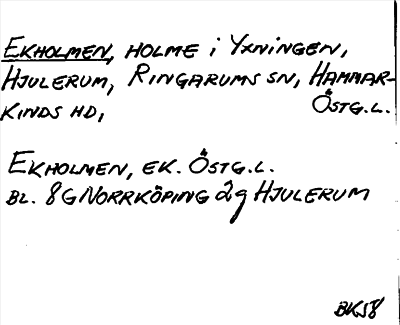 EKHOLMEN, HOLME i YXNINGEN,
HJULERUM, RINGARUMS SN, HAMMAR-
KINDS HD, ÖSTG.L.
EKHOLMEN, EK. ÖSTG.L.
BL. 8G NORRKÖPING 2g HJULERUM
BKS8